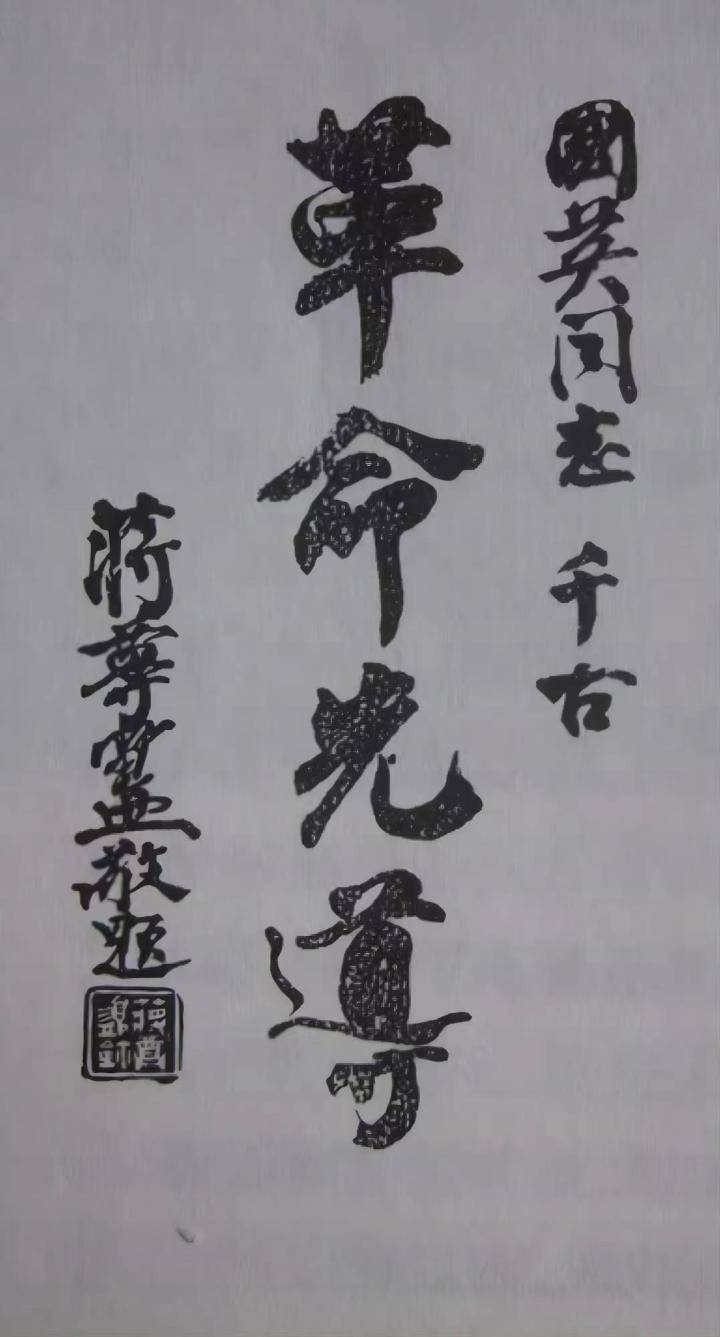 國英同志 千古
革命先導
蔣尊簋敬題